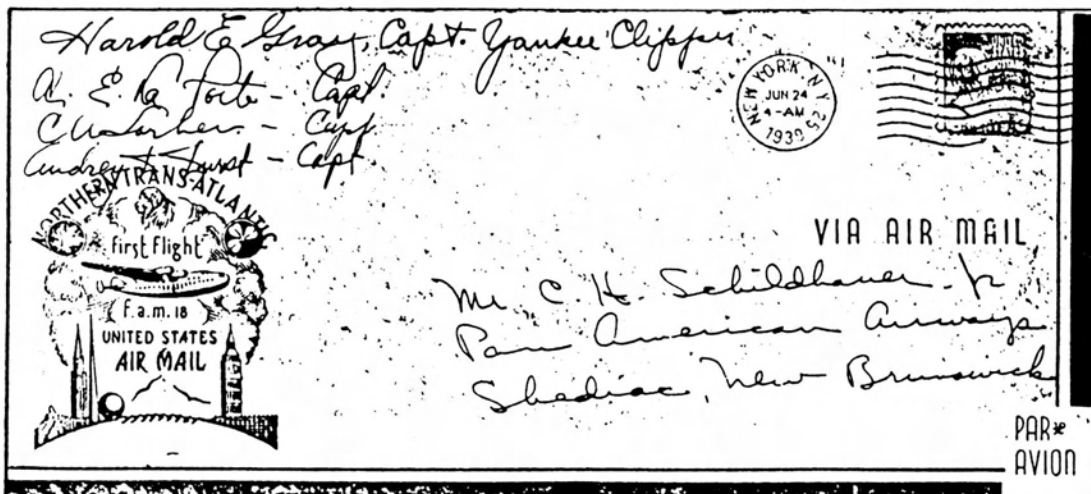 Harold E Gray, Capt. Yankee Clipper
A. E. La Porte - Capt.
C A Lorber - Capt
Audrey D Durst - Capt
NEW YORK N.Y. 25
JUN 24
4-AM
1939
NORTHERN TRANS-ATLANTIC
First Flight
F.a.m. 18
UNITED STATES
AIR MAIL
VIA AIR MAIL
Mr C. H. Schildhauer Jr
Pan American Airways
Shediac, New Brunswick
PAR
AVION